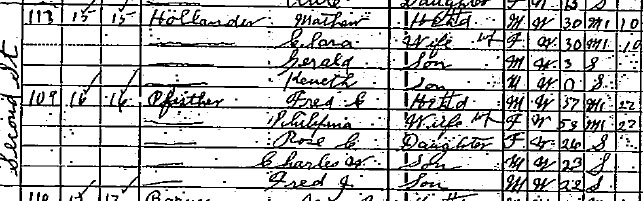 Daughter F W S
113 15 15 Hollander Mathew Head M W 30 M1 10
Clara Wife F W 30 M1 10
Gerald Son M W 3 S
Keneth Son M W 0 S
109 16 16 Pfisther Fred C Head M W 57 M1 22
Philipina Wife F W 53 M1 22
Rose C Daughter F W 26 S
Charles W Son M W 23 S
Fred J. Son M W 22 S
Second St